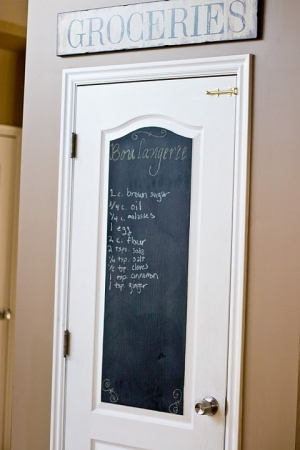 GROCERIES
Boulangerie
1 c. brown sugar
3/4 c. oil
1/4 c. molasses
1 egg
2 c. flour
2 tsp. soda
1/4 tsp. salt
1/2 tsp cloves
1 tsp. cinnamon
1 tsp. ginger